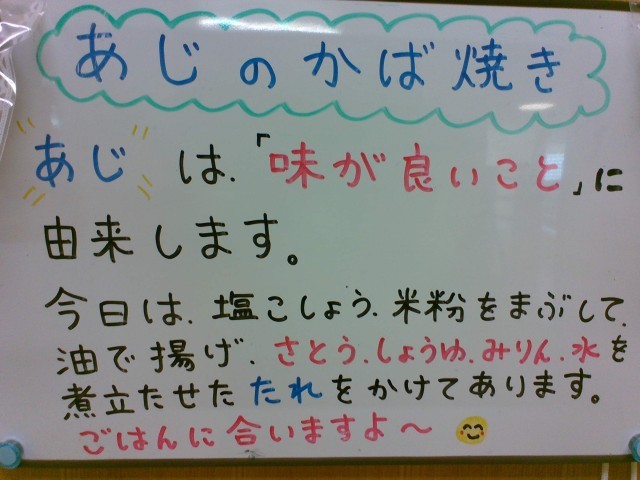 あじのかば焼き
あじは、「味が良いこと」に
由来します。
今日は、塩こしょう、米粉をまぶして、
油で揚げ、さとう、しょうゆ、みりん、水を
煮立たせたたれをかけてあります。
ごはんに合いますよ～